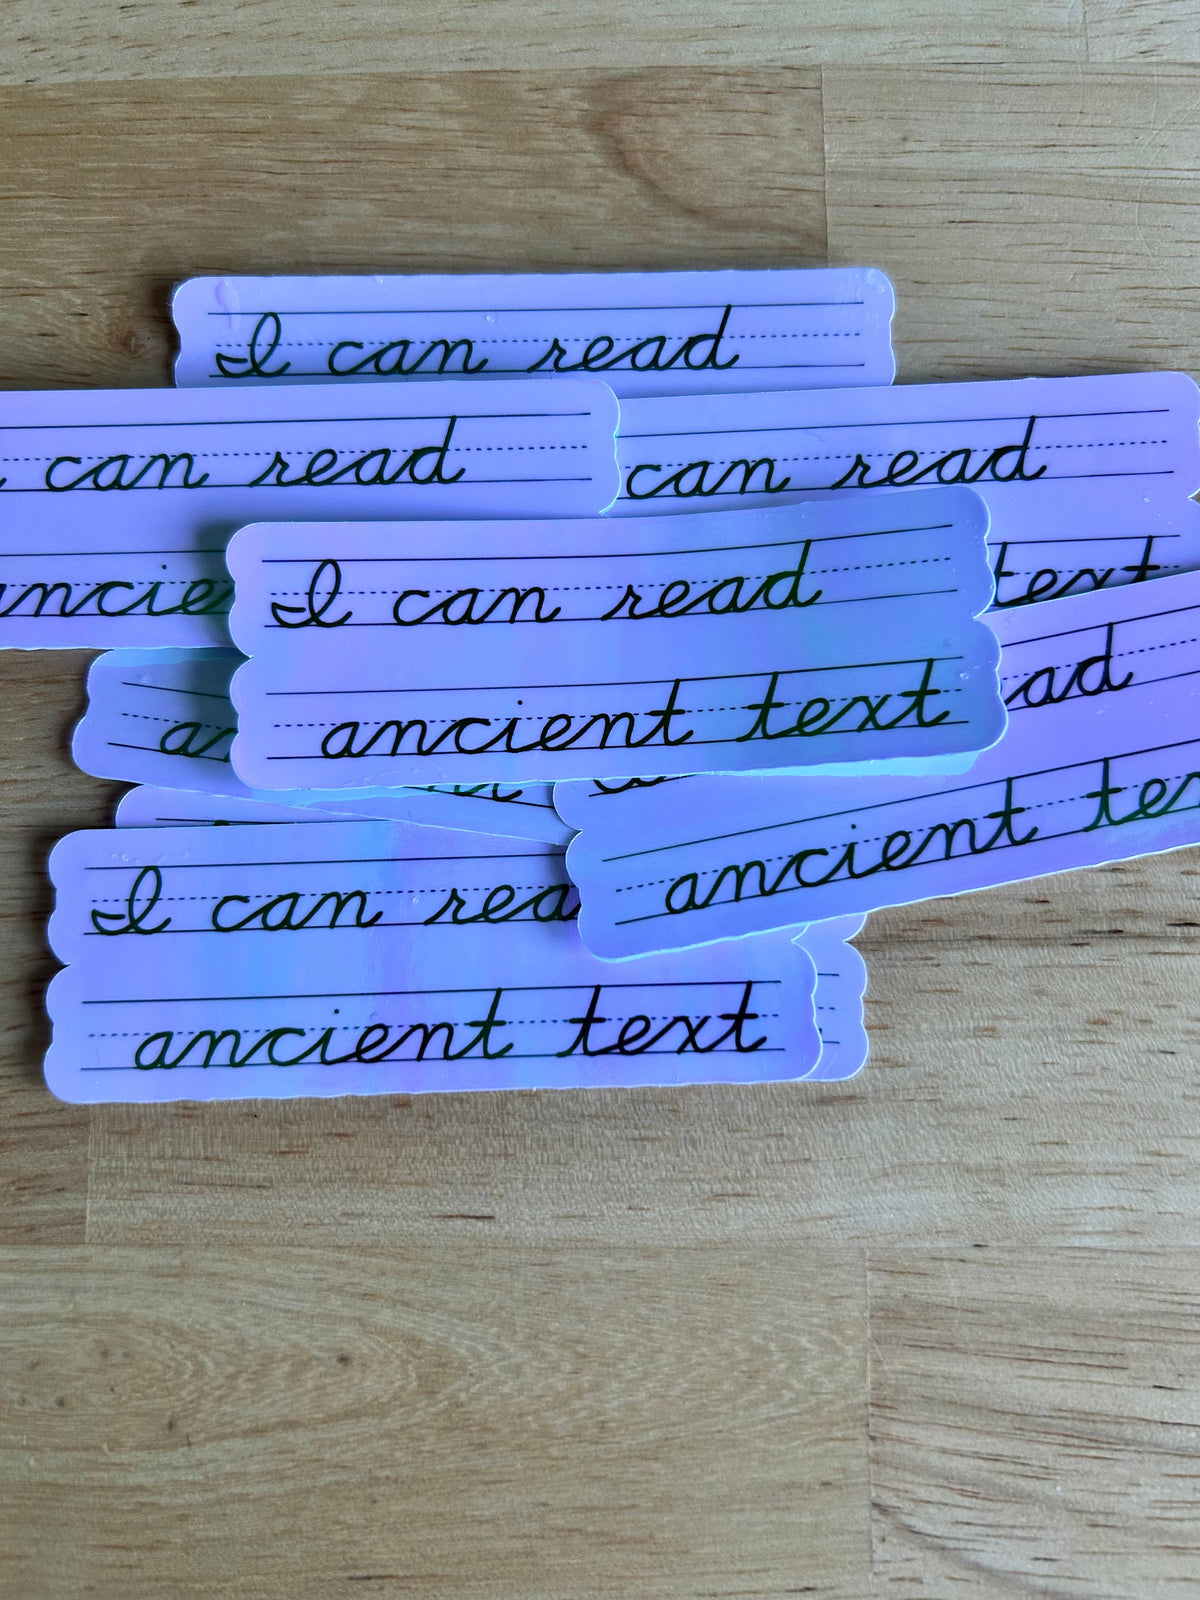 I can read
can read
can read
text
ancie
I can read
ancient text
ad
ancient te
an
I can rea
ancient text